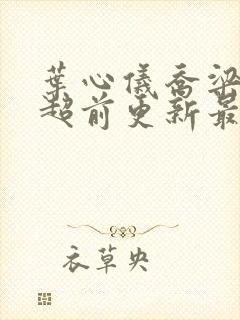 葉心儀喬梁
超前更新最
衣草央